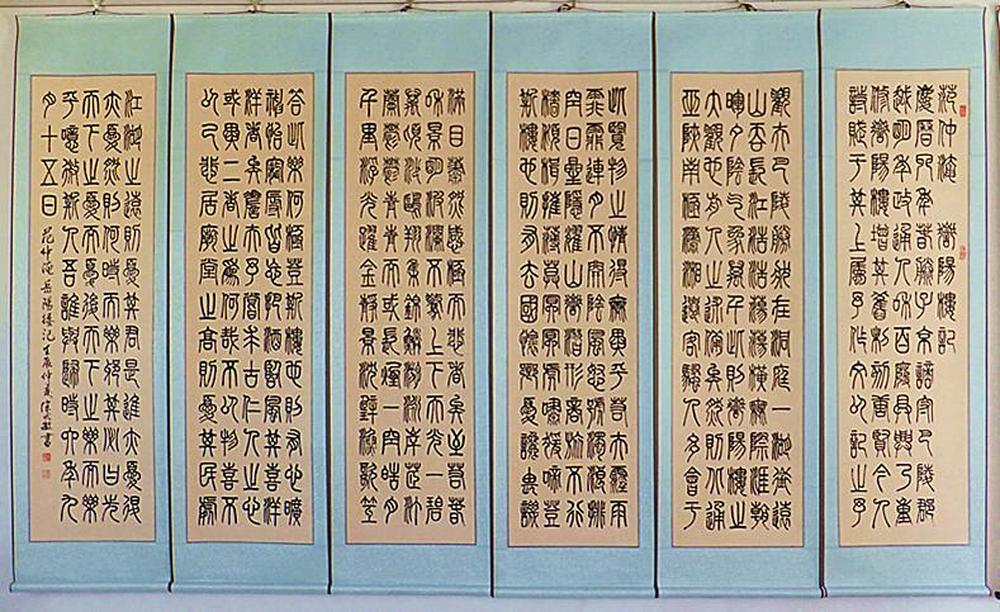 范仲淹 嶽陽樓記
慶曆四年春滕子京謫守巴陵郡
越明年政通人和百廢具興乃重
修嶽陽樓增其舊制刻唐賢今人
詩賦于其上屬予作文以記之予
觀夫巴陵勝狀在洞庭一湖銜遠
山吞長江浩浩湯湯橫無際涯朝
暉夕陰氣象萬千此則嶽陽樓之
大觀也前人之述備矣然則北通
巫峽南極瀟湘遷客騷人多會于
此覽物之情得無異乎若夫霪雨
霏霏連月不開陰風怒號濁浪排
空日星隱耀山嶽潛形商旅不行
檣傾楫摧薄暮冥冥虎嘯猿啼登
斯樓也則有去國懷鄉憂讒畏譏
滿目蕭然感極而悲者矣至若春
和景明波瀾不驚上下天光一碧
萬頃沙鷗翔集錦鱗游泳岸芷汀
蘭鬱鬱青青而或長煙一空皓月
千里浮光躍金靜影沉璧漁歌互
答此樂何極登斯樓也則有心曠
神怡寵辱皆忘把酒臨風其喜洋
洋者矣嗟夫予嘗求古仁人之心
或異二者之為何哉不以物喜不
以己悲居廟堂之高則憂其民處
江湖之遠則憂其君是進亦憂退
亦憂然則何時而樂耶其必曰先
天下之憂而憂後天下之樂而樂
乎噫微斯人吾誰與歸時六年九
月十五日 范仲淹岳陽樓記 壬辰仲夏 書